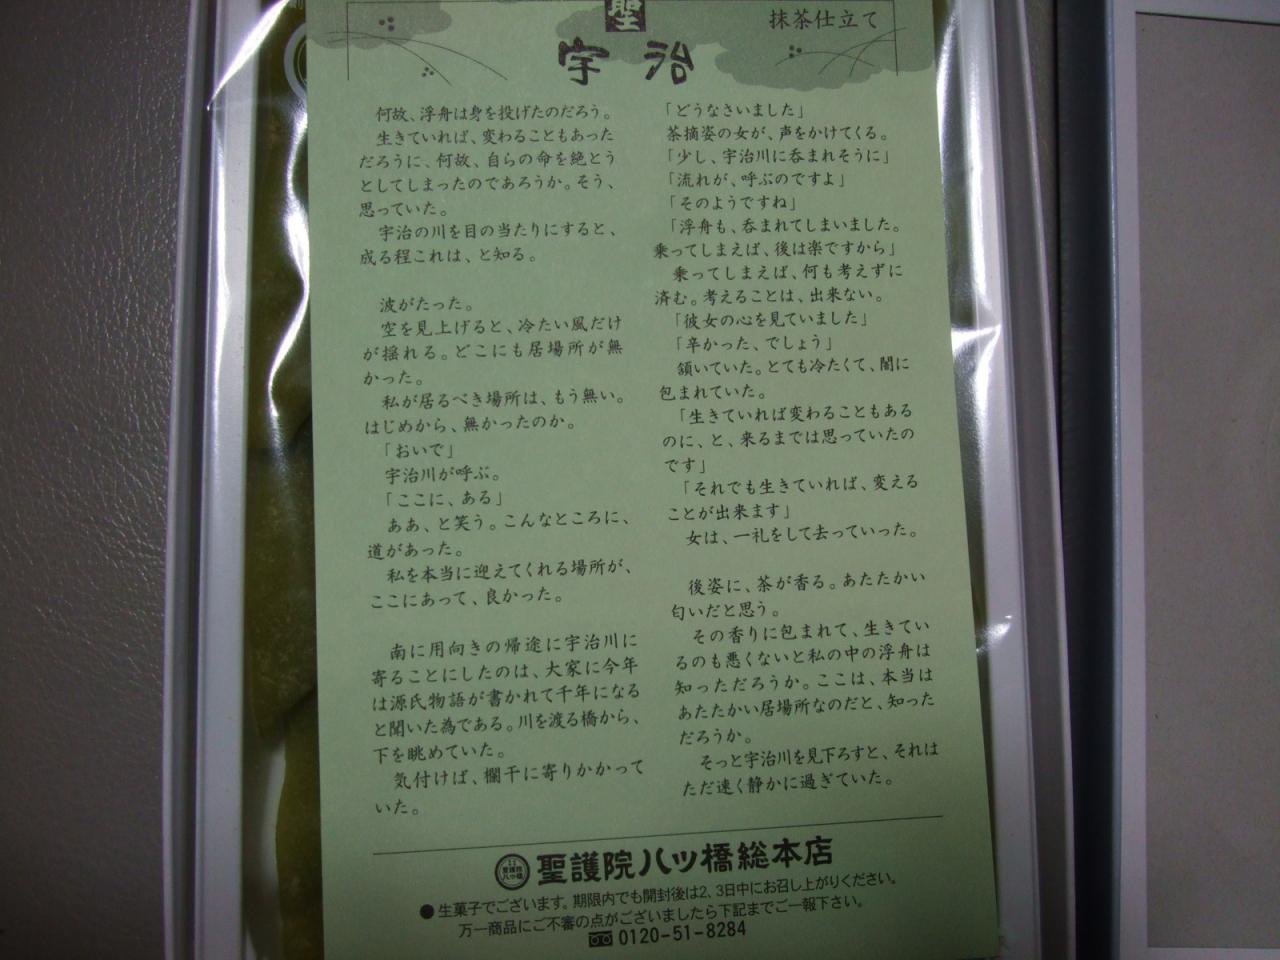 聖
抹茶仕立て
宇治
何故、浮舟は身を投げたのだろう。
生きていれば、変わることもあった
だろうに、何故、自らの命を絶とう
としてしまったのであろうか。そう、
思っていた。
宇治の川を目の当たりにすると、
成る程これは、と知る。
波がたった。
空を見上げると、冷たい風だけ
が揺れる。どこにも居場所が無
かった。
私が居るべき場所は、もう無い。
はじめから、無かったのか。
「おいで」
宇治川が呼ぶ。
「ここに、ある」
ああ、と笑う。こんなところに、
道があった。
私を本当に迎えてくれる場所が、
ここにあって、良かった。
南に用向きの帰途に宇治川に
寄ることにしたのは、大家に今年
は源氏物語が書かれて千年になる
と聞いた為である。川を渡る橋から、
下を眺めていた。
気付けば、欄干に寄りかかって
いた。
「どうなさいました」
茶摘姿の女が、声をかけてくる。
「少し、宇治川に呑まれそうに」
「流れが、呼ぶのですよ」
「そのようですね」
「浮舟も、呑まれてしまいました。
乗ってしまえば、後は楽ですから」
乗ってしまえば、何も考えずに
済む。考えることは、出来ない。
「彼女の心を見ていました」
「辛かった、でしょう」
頷いていた。とても冷たくて、闇に
包まれていた。
「生きていれば変わることもある
のに、と、来るまでは思っていたの
です」
「それでも生きていれば、変える
ことが出来ます」
女は、一礼をして去っていった。
後姿に、茶が香る。あたたかい
匂いだと思う。
その香りに包まれて、生きてい
るのも悪くないと私の中の浮舟は
知っただろうか。ここは、本当は
あたたかい居場所なのだと、知った
だろうか。
そっと宇治川を見下ろすと、それは
ただ速く静かに過ぎていた。
聖護院八ツ橋総本店
●生菓子でございます。期限内でも開封後は2、3日中にお召し上がりください。
万一商品にご不審の点がございましたら下記までご一報下さい。
0120-51-8284